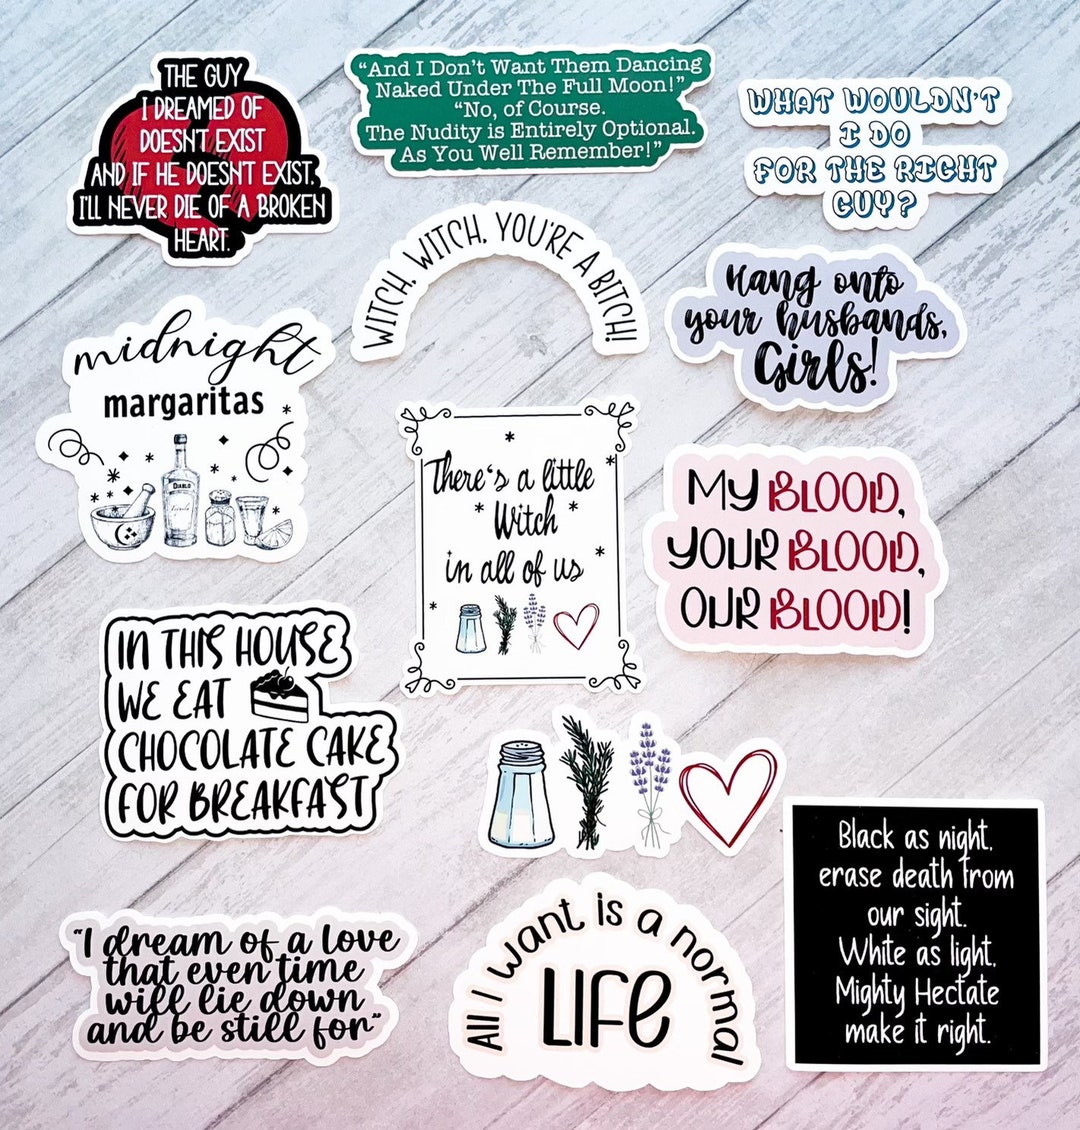 THE GUY
I DREAMED OF
DOESN'T EXIST
AND IF HE DOESN'T EXIST,
I'LL NEVER DIE OF A BROKEN
HEART.
“And I Don’t Want Them Dancing
Naked Under The Full Moon!”
“No, of Course.
The Nudity is Entirely Optional.
As You Well Remember!”
WHAT WOULDN'T
I DO
FOR THE RIGHT
GUY?
WITCH, WITCH, YOU'RE A BITCH!
Hang onto
your husbands,
Girls!
midnight
margaritas
DIABLO
There's a little
Witch
in all of us
MY BLOOD,
YOUR BLOOD,
OUR BLOOD!
IN THIS HOUSE
WE EAT
CHOCOLATE CAKE
FOR BREAKFAST
"I dream of a love
that even time
will lie down
and be still for"
All I want is a normal
LIFE
Black as night,
erase death from
our sight.
White as light,
Mighty Hectate
make it right.